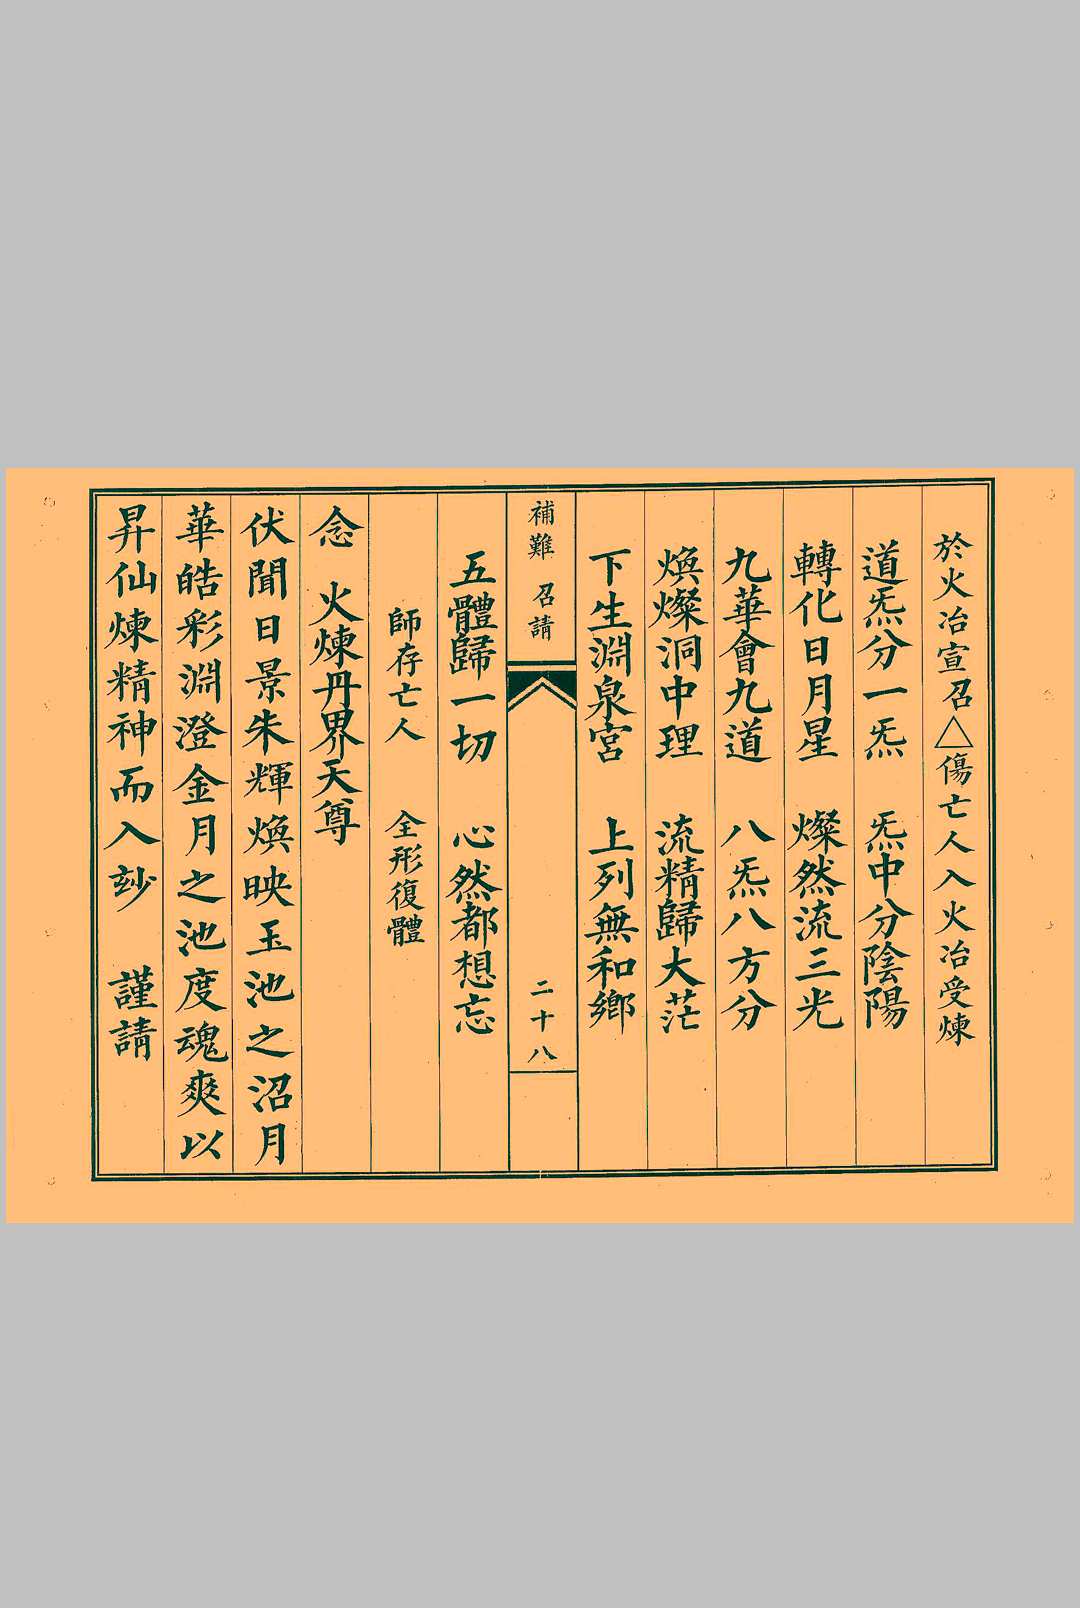 於火冶宣召△傷亡人入火冶受煉
道炁分一炁　炁中分陰陽
轉化日月星　燦然流三光
九華會九道　八炁八方分
煥燦洞中理　流精歸大茫
下生淵泉宮　上列無和鄉
補難　召請　二十八
五體歸一切　心然都想忘
師存亡人　全形復體
念　火煉丹界天尊
伏聞日景朱輝煥映玉池之沼月
華皓彩淵澄金月之池度魂爽以
昇仙煉精神而入玅　謹請